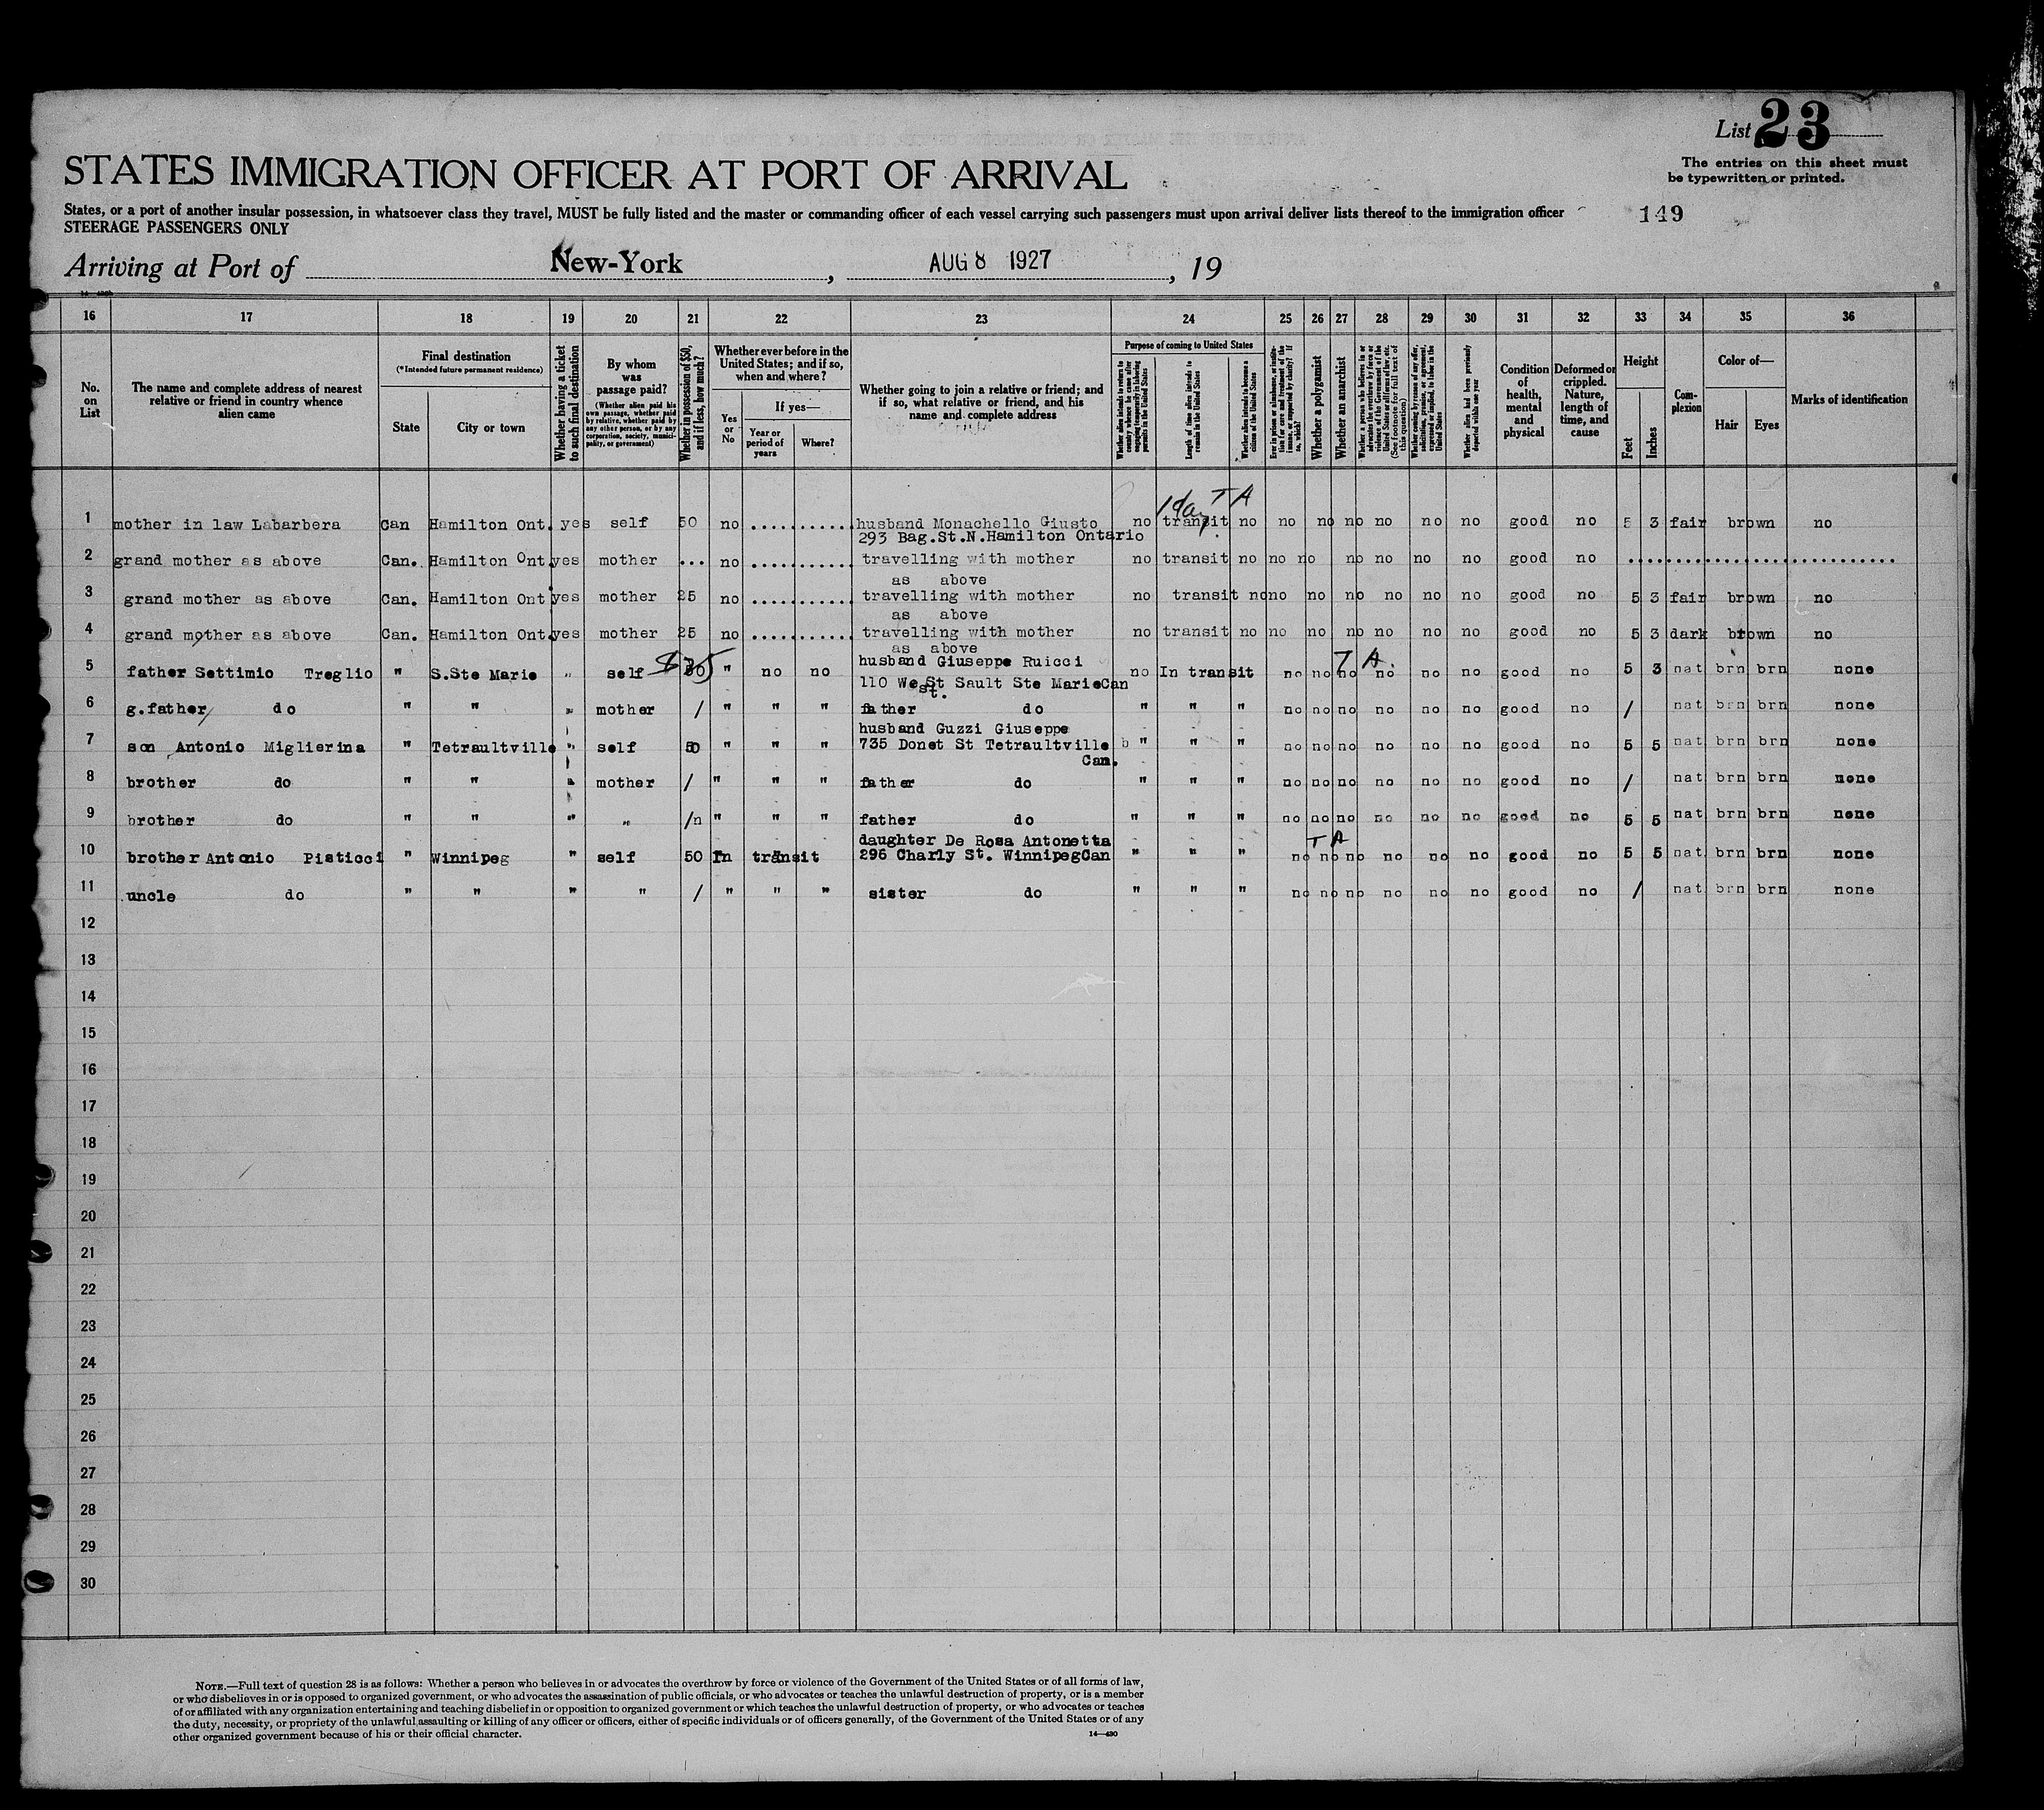 List 23
The entries on this sheet must
be typewritten or printed.
STATES IMMIGRATION OFFICER AT PORT OF ARRIVAL
States, or a port of another insular possession, in whatsoever class they travel, MUST be fully listed and the master or commanding officer of each vessel carrying such passengers must upon arrival deliver lists thereof to the immigration officer
149
STEERAGE PASSENGERS ONLY
Arriving at Port of New-York, AUG 8 1927, 19
16 17 18 19 20 21 22 23 24 25 26 27 28 29 30 31 32 33 34 35 36
No. on List
The name and complete address of nearest relative or friend in country whence alien came
Final destination
(*Intended future permanent residence)
State
City or town
Whether having a ticket to such final destination
By whom was passage paid?
(Whether alien paid his own passage, whether paid by relative, whether paid by any other person, or by any corporation, society, municipality, or government)
Whether in possession of $50, and if less, how much?
Whether ever before in the United States; and if so, when and where?
Yes or No
If yes—
Year or period of years
Where?
Whether going to join a relative or friend; and if so, what relative or friend, and his name and complete address
Purpose of coming to United States
Whether alien intends to return to country whence he came after engaging temporarily in laboring pursuits in the United States
Length of time alien intends to remain in the United States
Whether alien intends to become a citizen of the United States
Ever in prison or almshouse, or institution for care and treatment of the insane, or supported by charity? If so, which?
Whether a polygamist
Whether an anarchist
Whether a person who believes in or advocates the overthrow by force or violence of the Government of the United States or all forms of law, etc. (See footnote for full text of this question)
Whether coming by reason of any offer, solicitation, promise, or agreement, expressed or implied, to labor in the United States
Whether alien had been previously deported within one year
Condition of health, mental and physical
Deformed or crippled. Nature, length of time, and cause
Height
Feet
Inches
Complexion
Color of—
Hair
Eyes
Marks of identification
1 day T A
1 mother in law Labarbera Can Hamilton Ont. yes self 50 no ........... husband Monachello Giusto no transit no no no no no no no good no 5 3 fair brown no
293 Bag.St.N.Hamilton Ontario
2 grand mother as above Can. Hamilton Ont. yes mother ... no ........... travelling with mother no transit no no no no no no no good no ...........................
as above
3 grand mother as above Can. Hamilton Ont yes mother 25 no ........... travelling with mother no transit no no no no no no no good no 5 3 fair brown no
as above
4 grand mother as above Can. Hamilton Ont. yes mother 25 no ........... travelling with mother no transit no no no no no no no good no 5 3 dark brown no
as above
husband Giuseppe Ruicci T A.
5 father Settimio Treglio " S.Ste Marie " self $75 " no no no In transit no no no no no no good no 5 3 nat brn brn none
110 West St Sault Ste MarieCan
st.
6 g.father do " " " mother / " " " father do " " " no no no no no no good no / nat brn brn none
husband Guzzi Giuseppe
7 son Antonio Miglierina " Tetraultville " self 50 " " " 735 Donet St Tetraultville b " " " no no no no no no good no 5 5 nat brn brn none
Can.
8 brother do " " " mother / " " " father do " " " no no no no no no good no / nat brn brn none
9 brother do " " " " /n " " " father do " " " no no no no no no good no 5 5 nat brn brn none
daughter De Rosa Antonetta T A
10 brother Antonio Pisticci " Winnipeg " self 50 In transit 296 Charly St. WinnipegCan " " " no no no no no no good no 5 5 nat brn brn none
11 uncle do " " " " / " " " sister do " " " no no no no no no good no / nat brn brn none
12
13
14
15
16
17
18
19
20
21
22
23
24
25
26
27
28
29
30
NOTE.—Full text of question 28 is as follows: Whether a person who believes in or advocates the overthrow by force or violence of the Government of the United States or of all forms of law,
or who disbelieves in or is opposed to organized government, or who advocates the assassination of public officials, or who advocates or teaches the unlawful destruction of property, or is a member
of or affiliated with any organization entertaining and teaching disbelief in or opposition to organized government or which teaches the unlawful destruction of property, or who advocates or teaches
the duty, necessity, or propriety of the unlawful assaulting or killing of any officer or officers, either of specific individuals or of officers generally, of the Government of the United States or of any
other organized government because of his or their official character.
14—430